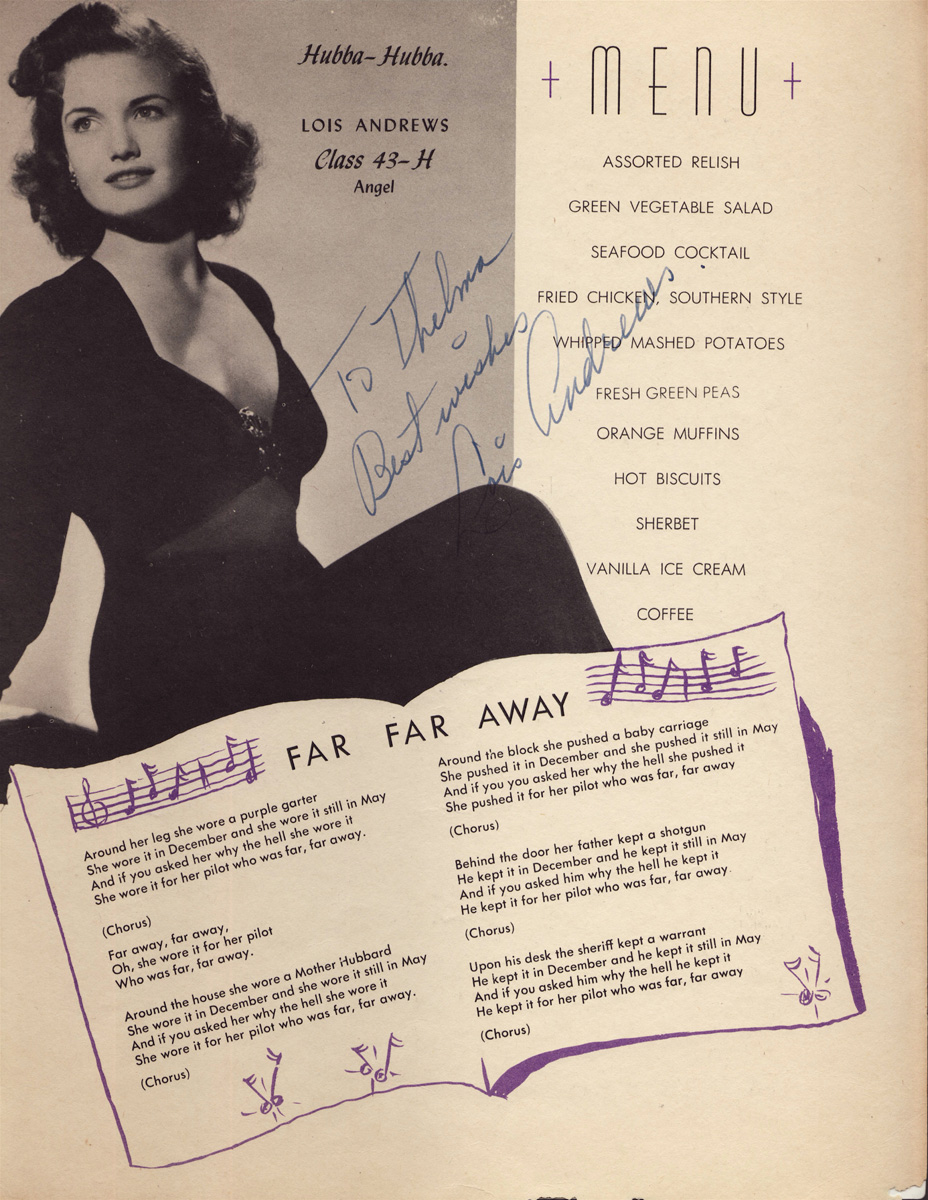 Hubba-Hubba.
LOIS ANDREWS
Class 43-H
Angel
To Thelma
Best wishes
Lois Andrews.
MENU
ASSORTED RELISH
GREEN VEGETABLE SALAD
SEAFOOD COCKTAIL
FRIED CHICKEN, SOUTHERN STYLE
WHIPPED MASHED POTATOES
FRESH GREEN PEAS
ORANGE MUFFINS
HOT BISCUITS
SHERBET
VANILLA ICE CREAM
COFFEE
FAR FAR AWAY
Around her leg she wore a purple garter
She wore it in December and she wore it still in May
And if you asked her why the hell she wore it
She wore it for her pilot who was far, far away.
(Chorus)
Far away, far away,
Oh, she wore it for her pilot
Who was far, far away.
Around the house she wore a Mother Hubbard
She wore it in December and she wore it still in May
And if you asked her why the hell she wore it
She wore it for her pilot who was far, far away.
(Chorus)
Around the block she pushed a baby carriage
She pushed it in December and she pushed it still in May
And if you you asked her why the hell she pushed it
She pushed it for her pilot who was far, far away
(Chorus)
Behind the door her father kept a shotgun
He kept it in December and he kept it still in May
And if you asked him why the hell he kept it
He kept it for her pilot who was far, far away.
(Chorus)
Upon his desk the sheriff kept a warrant
He kept it in December and he kept it still in May
And if you asked him why the hell he kept it
He kept it for her pilot who was far, far away
(Chorus)